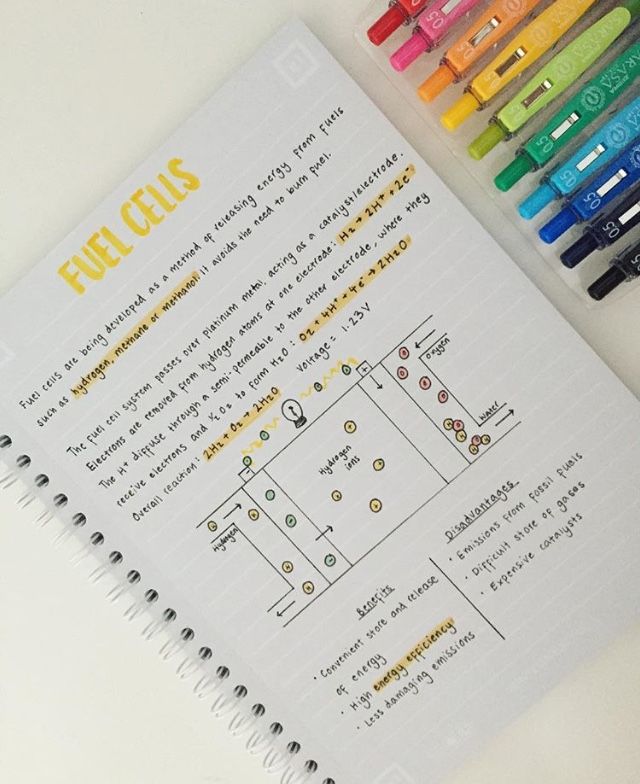 FUEL CELLS
Fuel cells are being developed as a method of releasing energy from fuels
such as hydrogen, methane or methanol. It avoids the need to burn fuel.
The fuel cell system passes over platinum metal, acting as a catalyst/electrode.
Electrons are removed from hydrogen atoms at one electrode: H2 → 2H+ + 2e-
The H+ diffuse through a semi-permeable to the other electrode, where they
receive electrons and ½ O2 to form H2O: O2 + 4H+ + 4e- → 2H2O
Overall reaction: 2H2 + O2 → 2H2O
Voltage = 1.23V
oxygen
Water
Hydrogen
ions
Hydrogen
Benefits
• Convenient store and release
of energy
• High energy efficiency
• Less damaging emissions
Disadvantages
• Emissions from fossil fuels
• Difficult store of gases
• Expensive catalysts
0.5
0.5
0.5
0.5
0.5
0.5
0.5
0.5
0.5
0.5
SARASA